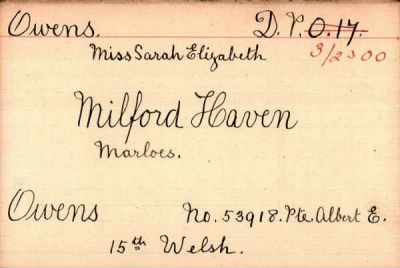 Owens. D.P. O.17.
Miss Sarah Elizabeth 3/2300
Milford Haven
Marloes.
Owens No. 53918. Pte. Albert E.
15th Welsh.